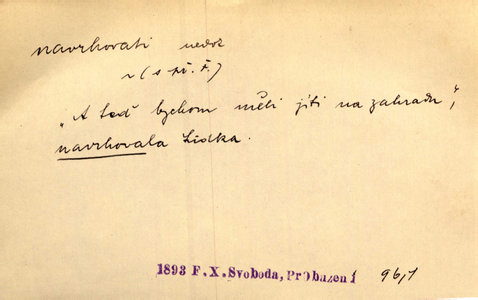 navrhovati nedok
~ (s př. ř.)
„A teď bychom měli jíti na zahradu",
navrhovala Lidka.
1893 F. X. Svoboda, Probuzení 96,1